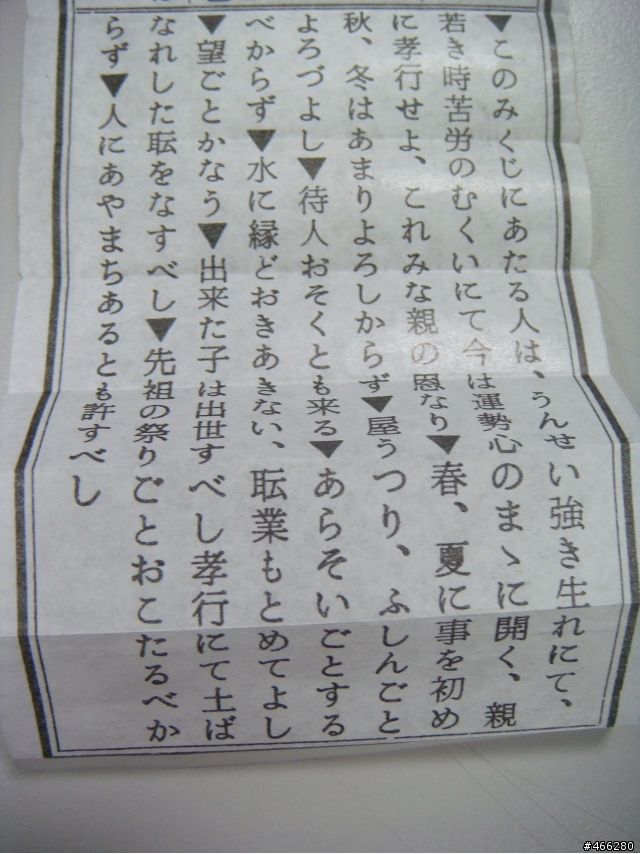 ▼このみくじにあたる人は、うんせい強き生れにて、
若き時苦労のむくいにて今は運勢心のまゝに開く、親
に孝行せよ、これみな親の恩なり▼春、夏に事を初め
秋、冬はあまりよろしからず▼屋うつり、ふしんごと
よろづよし▼待人おそくとも来る▼あらそいごとする
べからず▼水に縁どおきあきない、転業もとめてよし
▼望ごとかなう▼出来た子は出世すべし孝行にて土ば
なれした転をなすべし▼先祖の祭りごとおこたるべか
らず▼人にあやまちあるとも許すべし
#466280